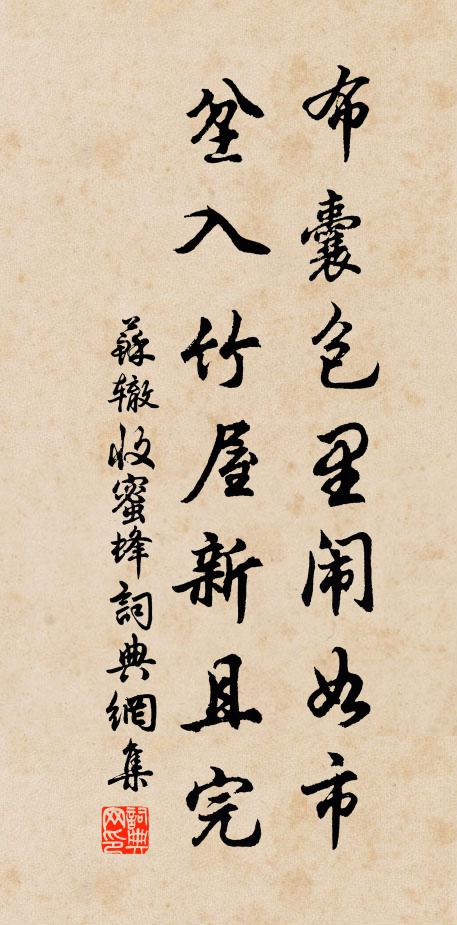 布囊包里闹如市
坌入竹屋新且完
蘇辙收蜜蜂詞典網集
詞典网印